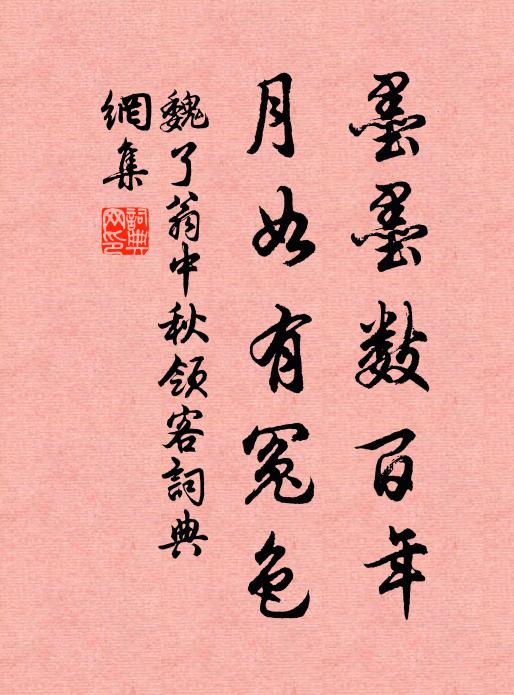 墨墨數百年
月如有冤色
魏了翁中秋領客詞典
網集
詞典網印